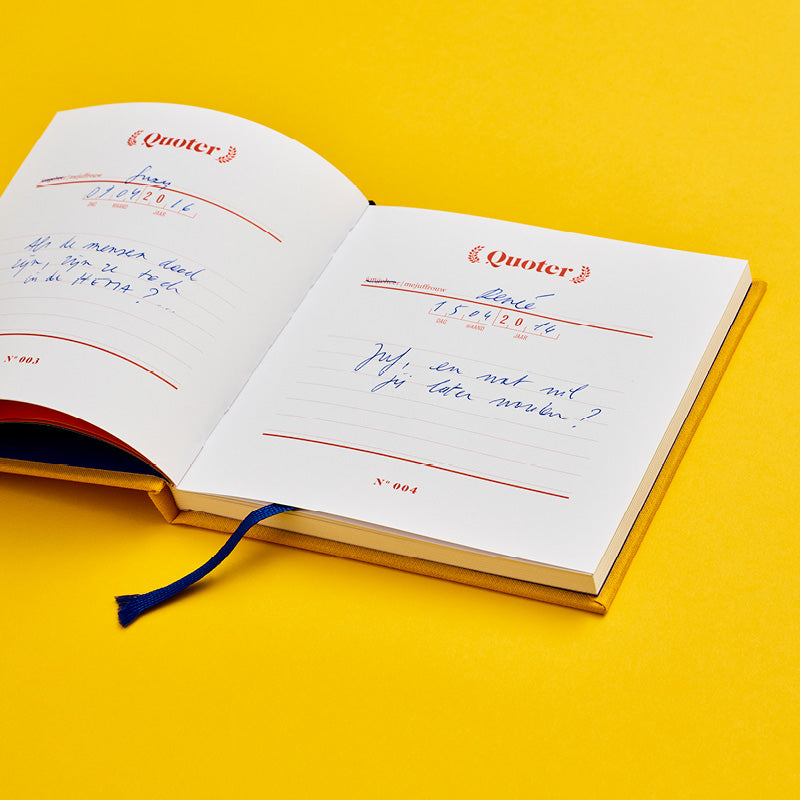 Quoter
| mejuffrouw Suzy
0 9 0 4 2 0 1 6
DAG MAAND JAAR
Als de mensen dood
zijn, zijn ze toch
in de HEMA? ...
Nº 003
Quoter
| mejuffrouw Renée
1 5 0 4 2 0 1 4
DAG MAAND JAAR
Juf, en wat wil
jij later worden?
Nº 004